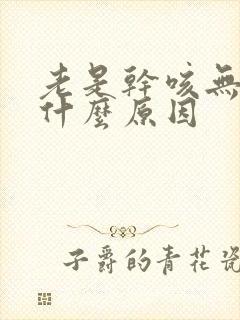 老是幹咳無
什麼原因
子爵的青花瓷